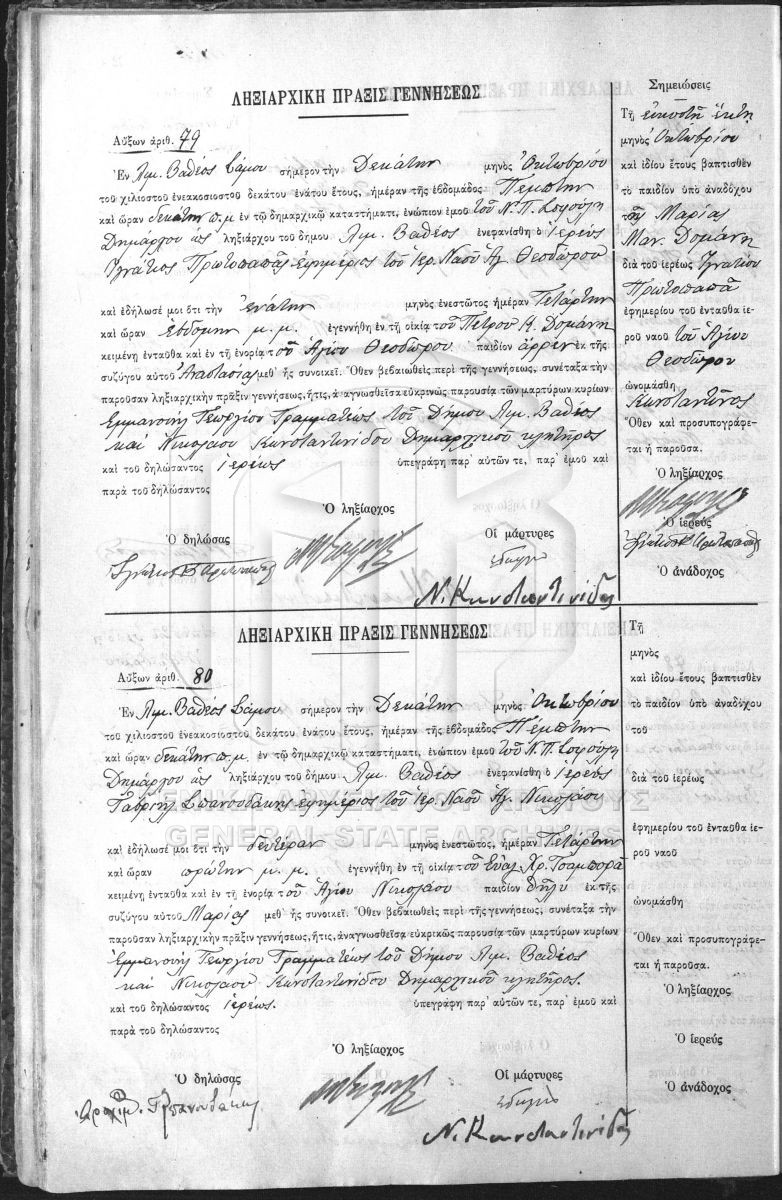 ΛΗΞΙΑΡΧΙΚΗ ΠΡΑΞΙΣ ΓΕΝΝΗΣΕΩΣ
Αὔξων ἀριθ. 79
Ἐν Λιμ. Βαθέος Σάμου σήμερον τὴν Δεκάτην μηνὸς Ὀκτωβρίου
τοῦ χιλιοστοῦ ἐνεακοσιοστοῦ δεκάτου ἐνάτου ἔτους, ἡμέραν τῆς ἑβδομάδος Πέμπτην
καὶ ὥραν δεκάτην π.μ. ἐν τῷ δημαρχικῷ καταστήματι, ἐνώπιον ἐμοῦ τοῦ Ν. Π. Σοφούλη
Δημάρχου ὡς ληξιάρχου τοῦ δήμου Λιμ. Βαθέος ἐνεφανίσθη ὁ ἱερεὺς
Ἰγνάτιος Πρωτοπαπᾶς ἐφημέριος τοῦ ἱερ. Ναοῦ Ἁγ. Θεοδώρου
καὶ ἐδήλωσέ μοι ὅτι τὴν ἐνάτην μηνὸς ἐνεστῶτος ἡμέραν Τετάρτην
καὶ ὥραν ἑβδόμην μ.μ. ἐγεννήθη ἐν τῇ οἰκίᾳ τοῦ Πέτρου Κ. Δομάνη
κειμένῃ ἐνταῦθα καὶ ἐν τῇ ἐνορίᾳ τοῦ Ἁγίου Θεοδώρου παιδίον ἄρρεν ἐκ τῆς
συζύγου αὐτοῦ Ἀναστασίας μεθ' ἧς συνοικεῖ. Ὅθεν βεβαιωθεὶς περὶ τῆς γεννήσεως, συνέταξα τὴν
παροῦσαν ληξιαρχικὴν πρᾶξιν γεννήσεως, ἥτις, ἀναγνωσθεῖσα εὐκρινῶς παρουσίᾳ τῶν μαρτύρων κυρίων
Ἐμμανουὴλ Γεωργίου Γραμματέως τοῦ Δήμου Λιμ. Βαθέος
καὶ Νικολάου Κωνσταντινίδου Δημαρχικοῦ κλητῆρος
καὶ τοῦ δηλώσαντος ἱερέως ὑπεγράφη παρ' αὐτῶν τε, παρ' ἐμοῦ καὶ
παρὰ τοῦ δηλώσαντος
Ὁ ληξίαρχος
Ὁ δηλώσας
Οἱ μάρτυρες
Ἰγνάτιος Πρωτοπαπᾶς
Ν. Κωνσταντινίδης
Σημειώσεις
Τῇ εἰκοστῇ ἕκτῃ
μηνὸς Ὀκτωβρίου
καὶ ἰδίου ἔτους βαπτισθὲν
τὸ παιδίον ὑπὸ ἀναδόχου
τῆς Μαρίας
Μαν. Δομάνη
διὰ τοῦ ἱερέως Ἰγνατίου
Πρωτοπαπᾶ
ἐφημερίου τοῦ ἐνταῦθα ἱε-
ροῦ ναοῦ τοῦ Ἁγίου
Θεοδώρου
ὠνομάσθη
Κωνσταντῖνος
Ὅθεν καὶ προσυπογράφε-
ται ἡ παροῦσα.
Ὁ ληξίαρχος
Ὁ ἱερεύς
Ὁ ἀνάδοχος
ΛΗΞΙΑΡΧΙΚΗ ΠΡΑΞΙΣ ΓΕΝΝΗΣΕΩΣ
Αὔξων ἀριθ. 80
Ἐν Λιμ. Βαθέος Σάμου σήμερον τὴν Δεκάτην μηνὸς Ὀκτωβρίου
τοῦ χιλιοστοῦ ἐνεακοσιοστοῦ δεκάτου ἐνάτου ἔτους, ἡμέραν τῆς ἑβδομάδος Πέμπτην
καὶ ὥραν δεκάτην π.μ. ἐν τῷ δημαρχικῷ καταστήματι, ἐνώπιον ἐμοῦ τοῦ Ν. Π. Σοφούλη
Δημάρχου ὡς ληξιάρχου τοῦ δήμου Λιμ. Βαθέος ἐνεφανίσθη ὁ ἱερεὺς
Γαβριὴλ Σπανουδάκης ἐφημέριος τοῦ ἱερ. Ναοῦ Ἁγ. Νικολάου
καὶ ἐδήλωσέ μοι ὅτι τὴν δευτέραν μηνὸς ἐνεστῶτος, ἡμέραν Τετάρτην
καὶ ὥραν πρώτην μ.μ. ἐγεννήθη ἐν τῇ οἰκίᾳ τοῦ Εὐαγ. Χρ. Τσαμπορᾶ
κειμένῃ ἐνταῦθα καὶ ἐν τῇ ἐνορίᾳ τοῦ Ἁγίου Νικολάου παιδίον θῆλυ ἐκ τῆς
συζύγου αὐτοῦ Μαρίας μεθ' ἧς συνοικεῖ. Ὅθεν βεβαιωθεὶς περὶ τῆς γεννήσεως, συνέταξα τὴν
παροῦσαν ληξιαρχικὴν πρᾶξιν γεννήσεως, ἥτις, ἀναγνωσθεῖσα εὐκρινῶς παρουσίᾳ τῶν μαρτύρων κυρίων
Ἐμμανουὴλ Γεωργίου Γραμματέως τοῦ Δήμου Λιμ. Βαθέος
καὶ Νικολάου Κωνσταντινίδου Δημαρχικοῦ κλητῆρος.
καὶ τοῦ δηλώσαντος ἱερέως. ὑπεγράφη παρ' αὐτῶν τε, παρ' ἐμοῦ καὶ
παρὰ τοῦ δηλώσαντος
Ὁ ληξίαρχος
Ὁ δηλώσας
Οἱ μάρτυρες
Ν. Κωνσταντινίδης
Τῇ
μηνὸς
καὶ ἰδίου ἔτους βαπτισθὲν
τὸ παιδίον ὑπὸ ἀναδόχου
τοῦ
διὰ τοῦ ἱερέως
ἐφημερίου τοῦ ἐνταῦθα ἱε-
ροῦ ναοῦ
ὠνομάσθη
Ὅθεν καὶ προσυπογράφε-
ται ἡ παροῦσα.
Ὁ ληξίαρχος
Ὁ ἱερεύς
Ὁ ἀνάδοχος
ΓΕΝΙΚΑ ΑΡΧΕΙΑ ΤΟΥ ΚΡΑΤΟΥΣ
GENERAL STATE ARCHIVES